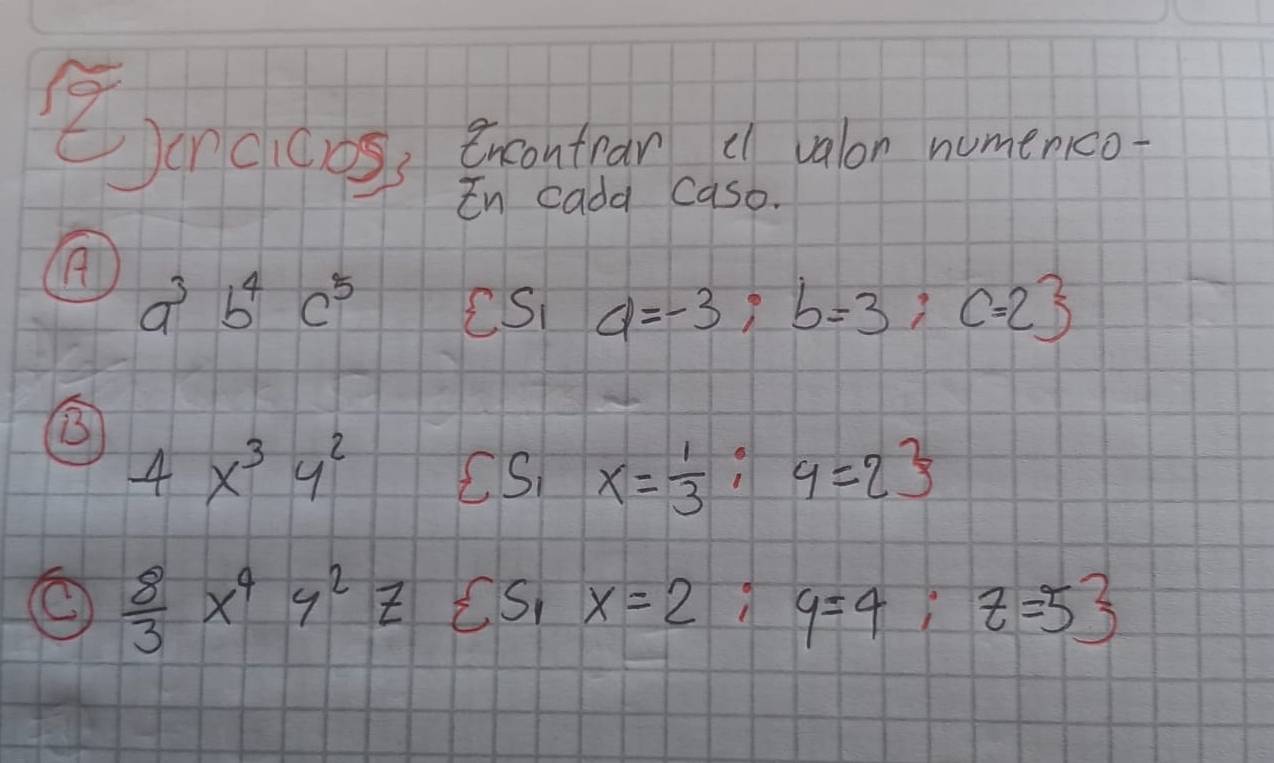 Ejercicios; Encontrar el valor numerico-
En cada caso.
A a³ b⁴ c⁵ {Si a=-3 ; b=3 ; c=2}
B 4 x³ y² {Si x=1/3 ; y=2}
C 8/3 x⁴ y² z {Si x=2 ; y=4 ; z=5}